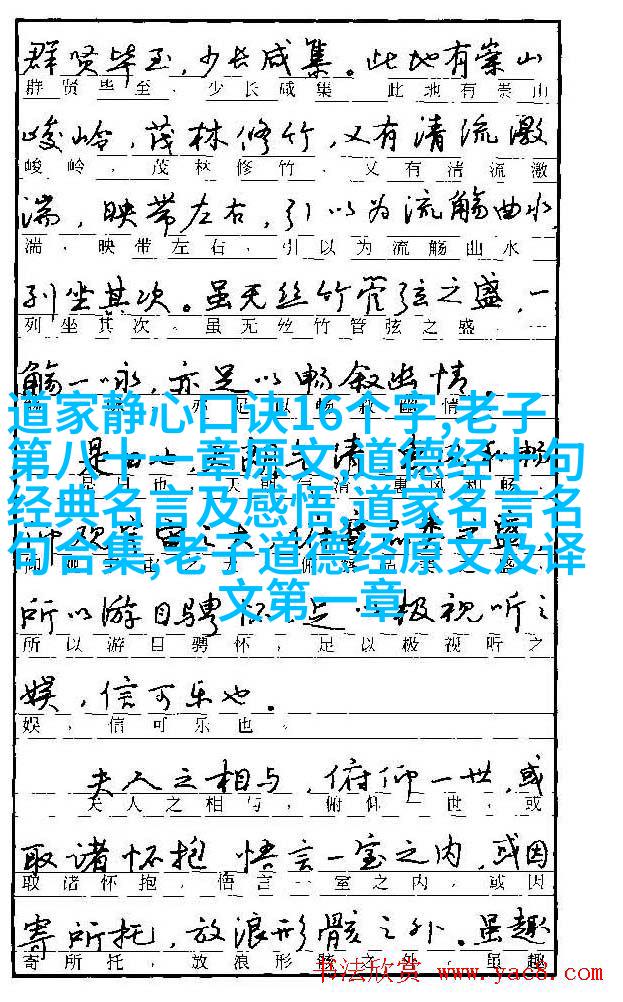 群贤毕至，少长咸集。此地有崇山
群贤毕至，少长咸集。此地有崇山
峻岭，茂林修竹，又有清流激
峻岭，茂林修竹，又有清流激
湍，映带左右，引以为流觞曲水，
湍，映带左右，引以为流觞曲水
列坐其次。虽无丝竹管弦之盛，一
列坐其次。虽无丝竹管弦之盛，一
觞一咏，亦足以畅叙幽情。
道家静心口诀16个字,老子
第八十一章原文,道德经十句
经典名言及感悟,道家名言名
句合集,老子道德经原文及译
文第一章
所以游目骋怀，足以极视听之
所以游目骋怀，足以极视听之
娱，信可乐也。
娱，信可乐也。
夫人之相与，俯仰一世，或
夫人之相与，俯仰一世，或
取诸怀抱 悟言一室之内，或因
取诸怀抱，悟言一室之内，或因
寄所托，放浪形骸之外。虽趣
寄所托，放浪形骸之外。虽趣
书法欣赏 www.yac8.com